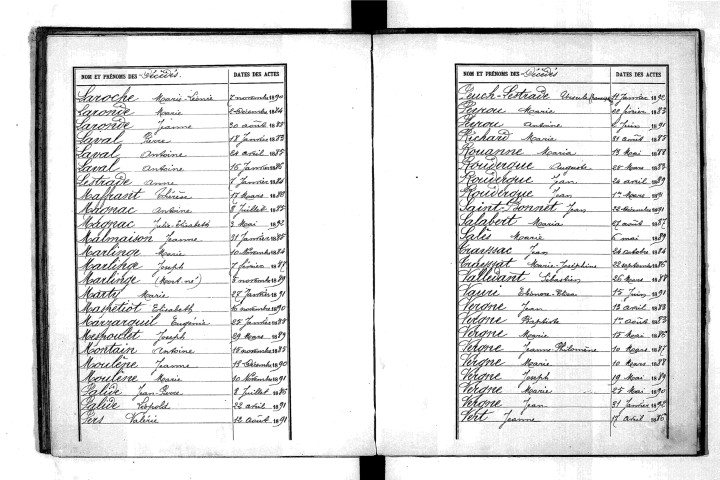 NOM ET PRÉNOMS DES Décédés. DATES DES ACTES
Laroche Marie-Léonie 7 novembre 1890
Laronde Marie 2 décembre 1884
Laronde Jeanne 30 août 1885
Laval Pierre 18 janvier 1883
Laval Antoine 24 avril 1885
Laval Antoine 16 janvier 1886
Lestrade Anne 7 janvier 1884
Maffrant Thérèse 17 mars 1888
Magnac Antoine 8 juillet 1885
Magnac Julie-Elisabeth 3 mai 1892
Malmaison Jeanne 31 janvier 1885
Marlinge Marie 10 novembre 1884
Marlinge Joseph 7 février 1887
Marlinge (Mort-né) 5 novembre 1889
Marty Marie 27 janvier 1891
Maspétiot Elisabeth 16 novembre 1890
Mazzarguil Eugénie 25 janvier 1888
Mespoulet Joseph 29 mars 1889
Montain Antoine 18 novembre 1885
Moulène Jeanne 13 décembre 1890
Moulène Marie 10 novembre 1891
Palide Jean-Pierre 8 juillet 1886
Palide Léopold 22 avril 1891
Pers Valérie 12 août 1891
NOM ET PRÉNOMS DES Décédés DATES DES ACTES
Peuch-Lestrade Ursule 11 janvier 1892
Peyrou Marie 22 février 1883
Peyrou Antoine 6 juin 1891
Richard Marie 31 août 1885
Rouanne Maria 13 mai 1888
Roudergue Auguste 28 mars 1883
Roudergue Jean 24 avril 1889
Roudergue Jean 1er mars 1891
Saint-Bonnet Jean 22 décembre 1891
Salabert Maria 27 août 1887
Salis Marie 6 mai 1889
Jean 24 octobre 1884
Marie-Joséphine 22 septembre 1886
Valledant Sébastien 26 mars 1888
Vaurè Eléonore-Elisa 15 juin 1891
Vergne Jean 12 avril 1883
Vergne Baptiste 1er août 1883
Vergne Marie 15 mai 1886
Vergne Jeanne Philomène 10 mars 1887
Vergne Marie 10 mars 1888
Vergne Joseph 19 mai 1889
Vergne Marie 25 mai 1890
Vergne Jean 31 janvier 1892
Vert Jeanne 17 avril 1886